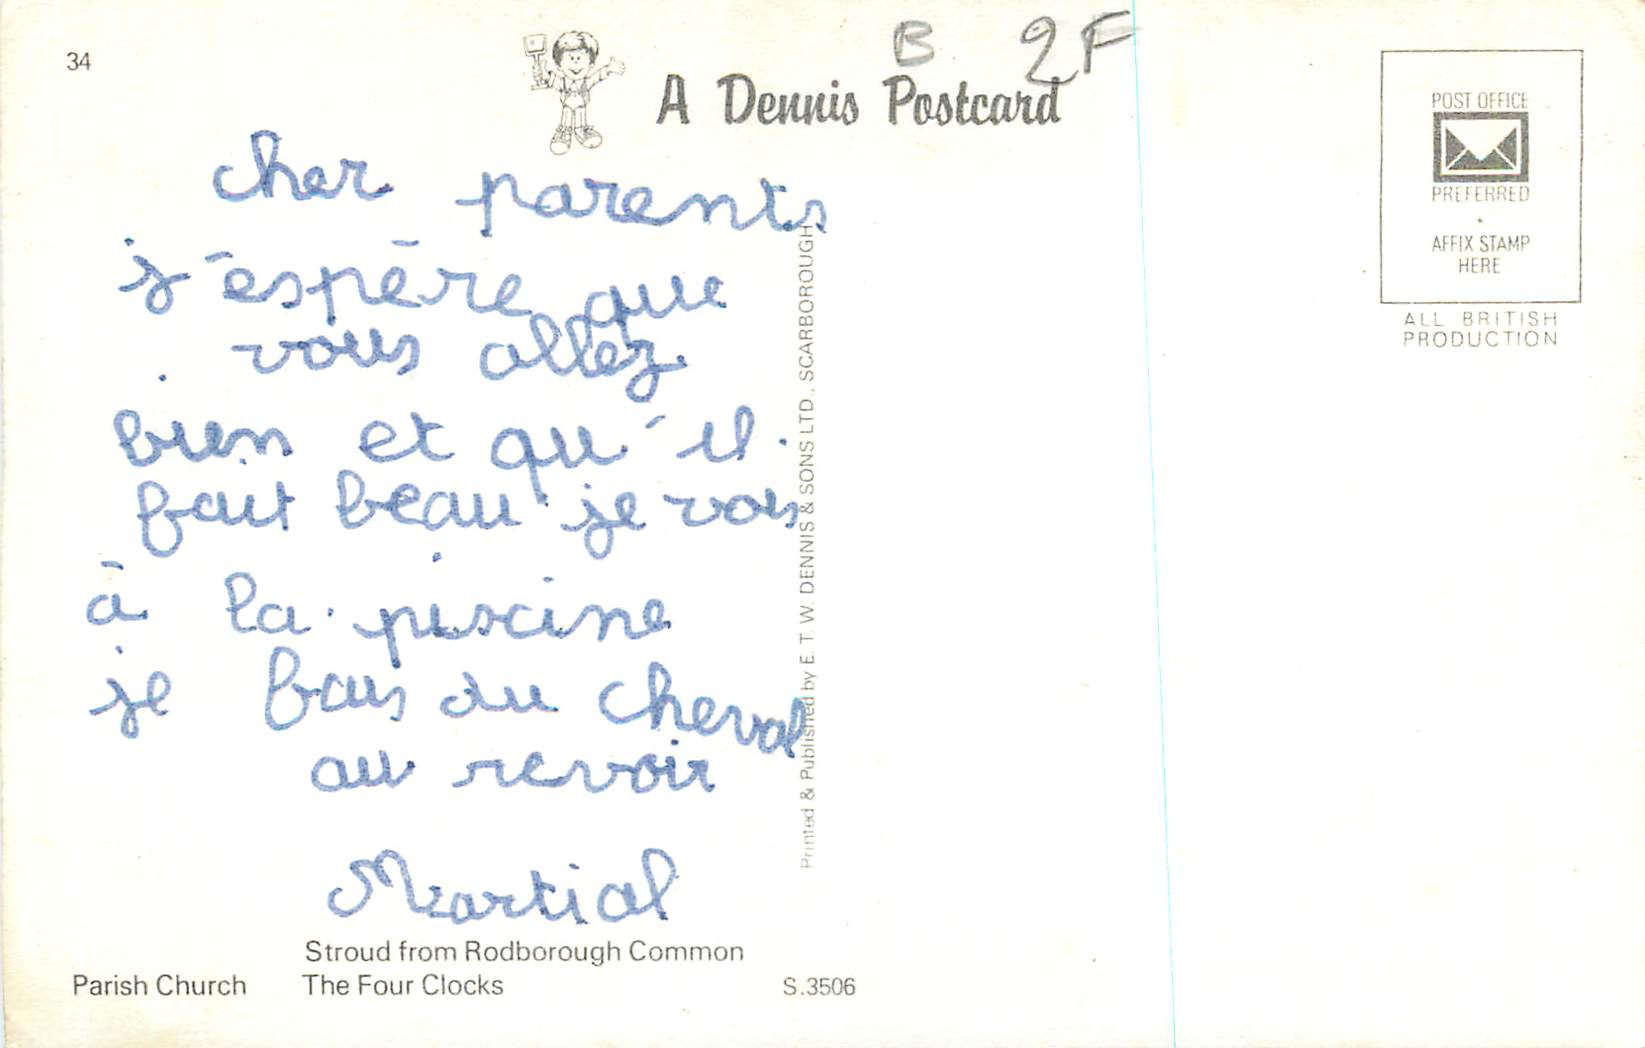 34
B 2F
A Dennis Postcard
POST OFFICE
PREFERRED
AFFIX STAMP
HERE
ALL BRITISH
PRODUCTION
cher parents
j'espère que
vous allez
bien et qu'il
fait beau je vais
à la piscine
je fais du cheval
au revoir
Martial
Printed & Published by E. T. W. DENNIS & SONS LTD., SCARBOROUGH
Stroud from Rodborough Common
Parish Church The Four Clocks S.3506